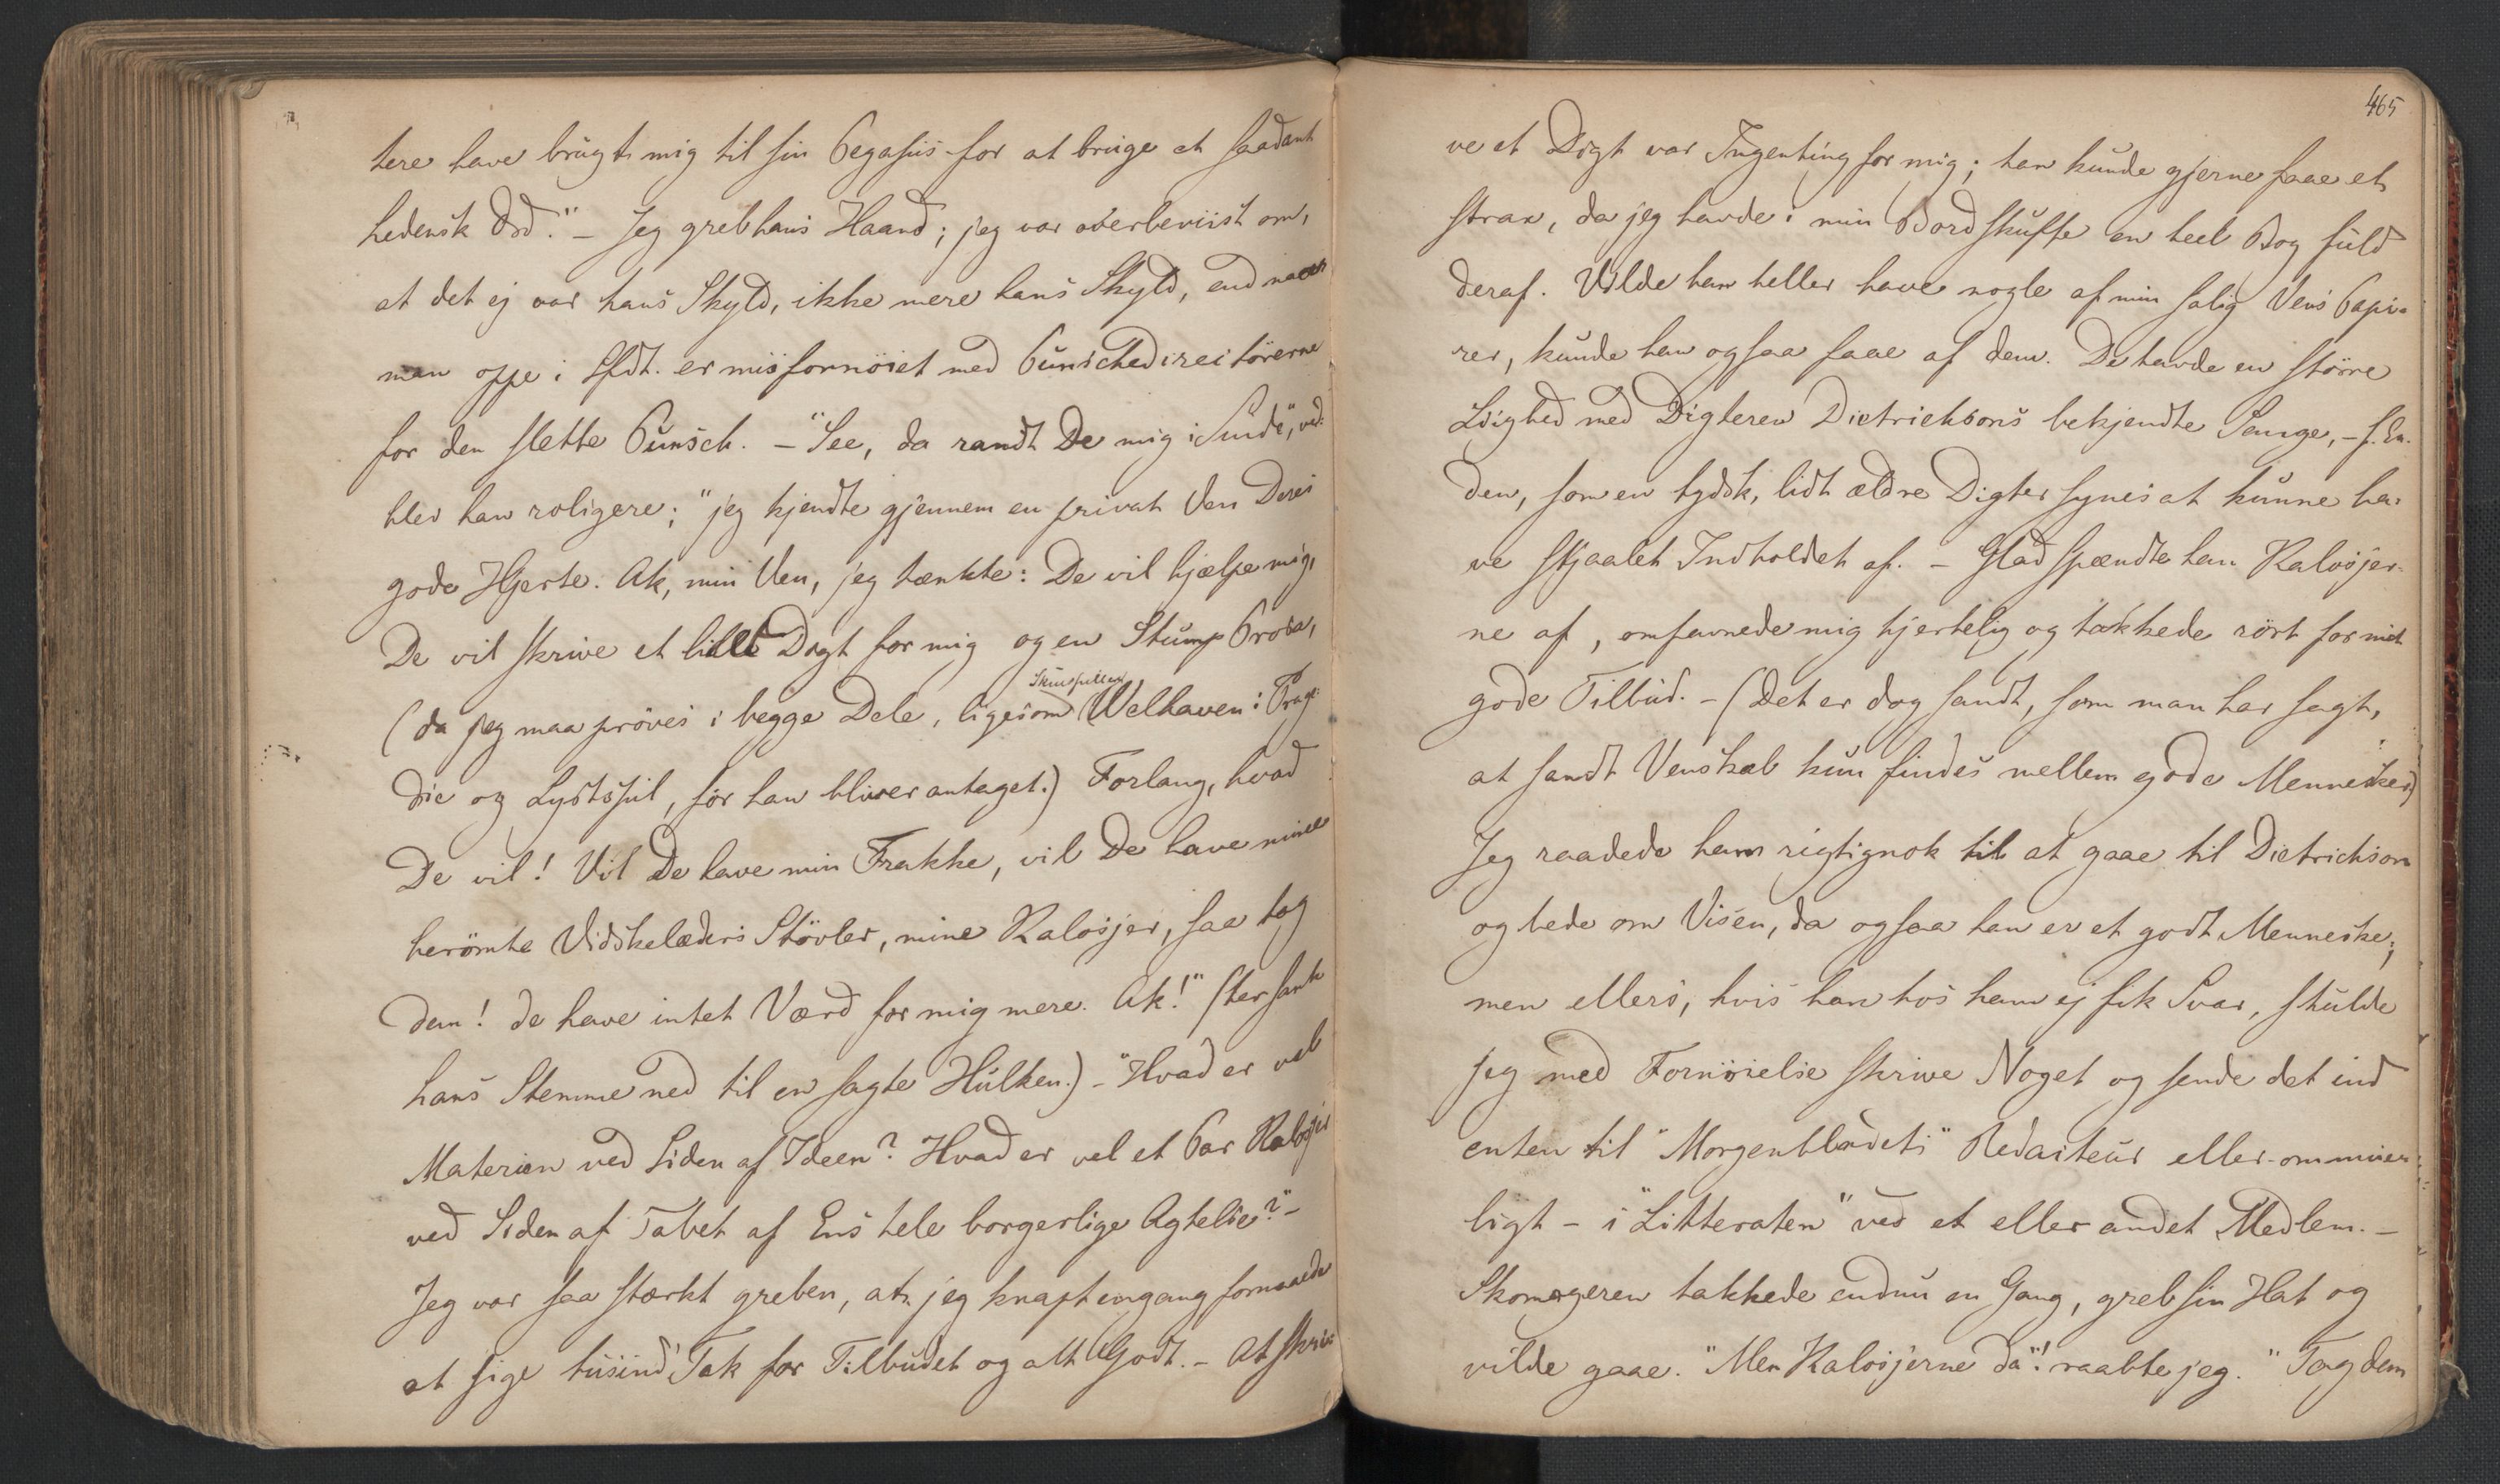 tere have brugt mig til sin Pegasus for at bruge et saadant
hedensk Ord." – Jeg greb hans Haand; jeg var overbeviist om,
at det ej var hans Skyld, ikke mere hans Skyld, end naar
man oppe i Sfdt. er misfornöiet med Punschedirecteurerne
for den slette Punsch. – "See, da randt De mig i Sinde", ved-
blev han roligere; "jeg kjendte gjennem en privat Ven Deres
gode Hjerte. Ak, min Ven, jeg tænkte: De vil hjælpe mig,
De vil skrive et lillet Digt for mig og en Stump Prosa,
(da jeg maa pröves i begge Dele, ligesom Skuespiller Welhaven i Trage-
die og Lystspil, för han bliver antaget.) Forlang, hvad
De vil! Vil De have min Frakke, vil De have mine
berömte Vidskelæders Stövler, mine Kalosjer, saa tag
dem! de have intet Værd for mig mere. Ak!" (her sank
hans Stemme ned til en sagte Hulken.) – "Hvad er vel
Materien ved Siden af Ideen? Hvad er vel et Par Kalosjer
ved Siden af Tabet af Ens hele borgerlige Agtelse?" –
Jeg var saa stærkt greben, at jeg knapt engang formaaede
at sige tusind Tak for Tilbudet og alt Godt. – At skri-
465
ve et Digt var Ingenting for mig; han kunde gjerne faae et
strax, da jeg havde i min Bordskuffe en heel Bog fuld
deraf. Vilde han heller have nogle af min salig Vens Papi-
rer, kunde han ogsaa faae af dem. De havde en större
Lighed med Digteren Dietrichsons bekjendte Sange, – f. Ex.
den, som en tydsk, lidt ældre Digter synes at kunne ha-
ve stjaalet Indholdet af. – Glad spændte han Kalosjer-
ne af, omfavnede mig hjertelig og takkede rört for mit
gode Tilbud. – (Det er dog sandt, som man har sagt,
at sandt Venskab kun findes mellem gode Mennesker)
Jeg raadede ham rigtignok til at gaae til Dietrichson
og bede om Visen, da ogsaa han er et godt Menneske;
men ellers, hvis han hos ham ej fik Svar, skulde
jeg med Fornöielse skrive Noget og sende det ind
enten til "Morgenbladets" Redacteur eller – om mueligt
ligt – i "Litteraten" ved et eller andet Medlem. –
Skomageren takkede endnu en Gang, greb sin Hat og
vilde gaae. "Men Kalosjerne da"! raabte jeg. "Tag dem